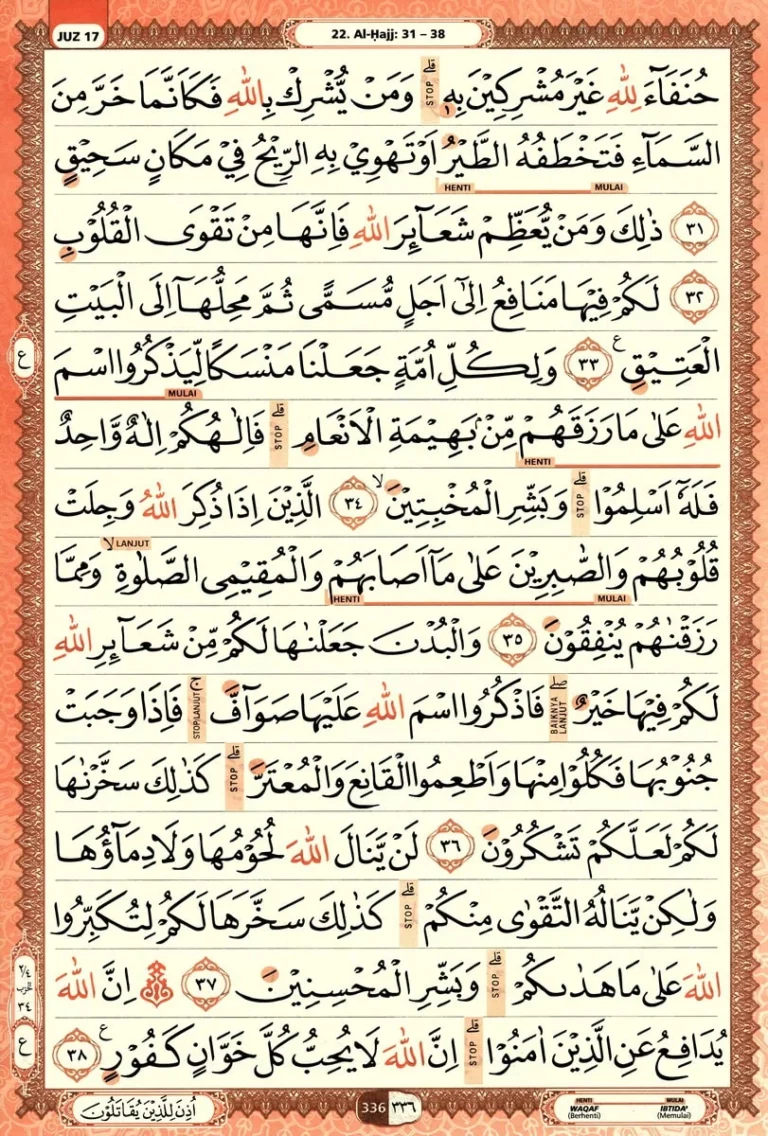 JUZ 17
22. Al-Ḥajj: 31 – 38
حُنَفَاۤءَ لِلّٰهِ غَيْرَ مُشْرِكِيْنَ بِهٖ ۗ STOP وَمَنْ يُّشْرِكْ بِاللّٰهِ فَكَاَنَّمَا خَرَّ مِنَ
السَّمَاۤءِ فَتَخْطَفُهُ الطَّيْرُ اَوْ تَهْوِيْ بِهِ الرِّيْحُ فِيْ مَكَانٍ سَحِيْقٍ
HENTI MULAI
٣١ ذٰلِكَ وَمَنْ يُّعَظِّمْ شَعَاۤىِٕرَ اللّٰهِ فَاِنَّهَا مِنْ تَقْوَى الْقُلُوْبِ
٣٢ لَكُمْ فِيْهَا مَنَافِعُ اِلٰٓى اَجَلٍ مُّسَمًّى ثُمَّ مَحِلُّهَآ اِلَى الْبَيْتِ
الْعَتِيْقِ ࣖ ٣٣ وَلِكُلِّ اُمَّةٍ جَعَلْنَا مَنْسَكًا لِّيَذْكُرُوا اسْمَ
ع
MULAI
اللّٰهِ عَلٰى مَا رَزَقَهُمْ مِّنْۢ بَهِيْمَةِ الْاَنْعَامِۗ STOP فَاِلٰهُكُمْ اِلٰهٌ وَّاحِدٌ
HENTI
فَلَهٗٓ اَسْلِمُوْاۗ STOP وَبَشِّرِ الْمُخْبِتِيْنَۙ ٣٤ الَّذِيْنَ اِذَا ذُكِرَ اللّٰهُ وَجِلَتْ
LANJUT
قُلُوْبُهُمْ وَالصّٰبِرِيْنَ عَلٰى مَآ اَصَابَهُمْ وَالْمُقِيْمِى الصَّلٰوةِۙ وَمِمَّا
HENTI MULAI
رَزَقْنٰهُمْ يُنْفِقُوْنَ ٣٥ وَالْبُدْنَ جَعَلْنٰهَا لَكُمْ مِّنْ شَعَاۤىِٕرِ اللّٰهِ
لَكُمْ فِيْهَا خَيْرٌۖ BAIKNYA LANJUT فَاذْكُرُوا اسْمَ اللّٰهِ عَلَيْهَا صَوَاۤفَّۚ STOP/LANJUT فَاِذَا وَجَبَتْ
جُنُوْبُهَا فَكُلُوْا مِنْهَا وَاَطْعِمُوا الْقَانِعَ وَالْمُعْتَرَّۗ STOP كَذٰلِكَ سَخَّرْنٰهَا
لَكُمْ لَعَلَّكُمْ تَشْكُرُوْنَ ٣٦ لَنْ يَّنَالَ اللّٰهَ لُحُوْمُهَا وَلَا دِمَاۤؤُهَا
وَلٰكِنْ يَّنَالُهُ التَّقْوٰى مِنْكُمْۗ STOP كَذٰلِكَ سَخَّرَهَا لَكُمْ لِتُكَبِّرُوا
اللّٰهَ عَلٰى مَا هَدٰىكُمْۗ STOP وَبَشِّرِ الْمُحْسِنِيْنَ ٣٧ ۞ اِنَّ اللّٰهَ
٢/٤
الحزب
٣٤
يُدَافِعُ عَنِ الَّذِيْنَ اٰمَنُوْاۗ STOP اِنَّ اللّٰهَ لَا يُحِبُّ كُلَّ خَوَّانٍ كَفُوْرٍ ࣖ ٣٨
ع
اُذِنَ لِلَّذِيْنَ يُقَاتَلُوْنَ
336 ٣٣٦
HENTI MULAI
WAQAF IBTIDA'
(Berhenti) (Memulai)